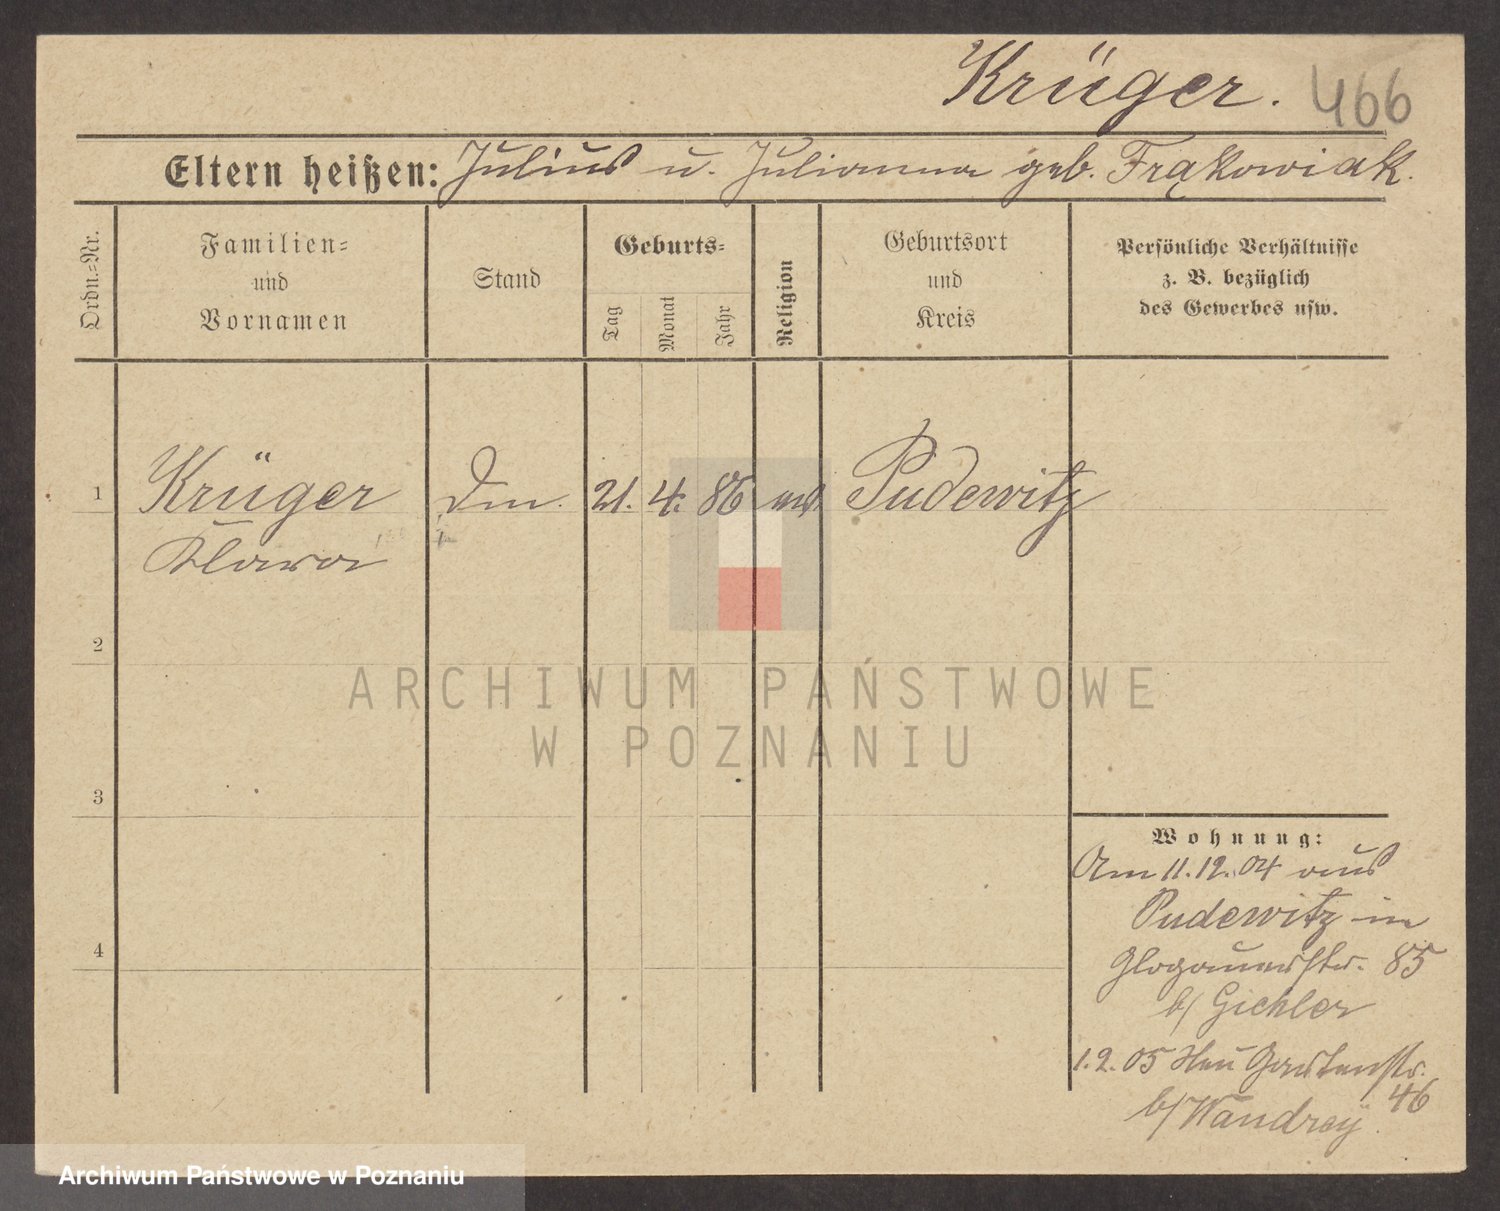 Krüger. 466
Eltern heißen: Julius u. Julianna geb. Frąkowiak.
Ordn.=Nr.
Familien=
und
Vornamen
Stand
Geburts=
Tag
Monat
Jahr
Religion
Geburtsort
und
Kreis
Persönliche Verhältnisse
z. B. bezüglich
des Gewerbes usw.
1 Krüger 21. 4. 86 Pudewitz
Klara
2
3
4
Wohnung:
Am 11.12.04 aus
Pudewitz in
Glogauerstr. 85
b/ Gichler
1.2.05 Gartenstr.
46
b/ Wandrey.
ARCHIWUM PAŃSTWOWE
W POZNANIU
Archiwum Państwowe w Poznaniu